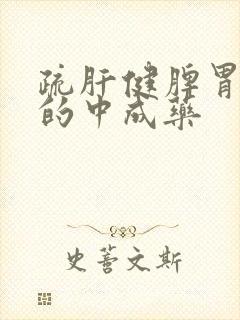 疏肝健脾胃
的中成药
史蒈文斯